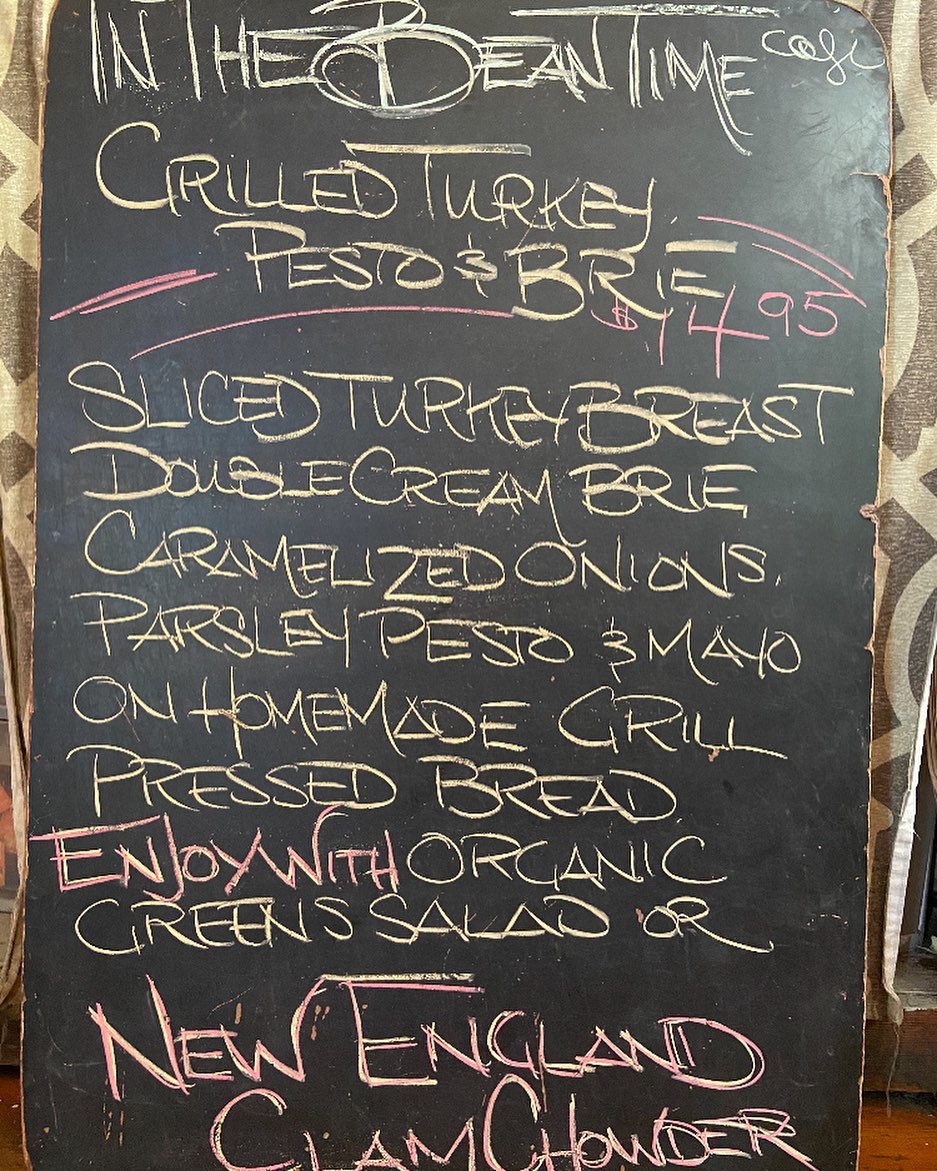 IN THE BEAN TIME cafe
GRILLED TURKEY
PESTO & BRIE
$14.95
SLICED TURKEY BREAST
DOUBLE CREAM BRIE
CARAMELIZED ONIONS,
PARSLEY PESTO & MAYO
ON HOMEMADE GRILL
PRESSED BREAD
ENJOY WITH ORGANIC
GREENS SALAD OR
NEW ENGLAND
CLAM CHOWDER